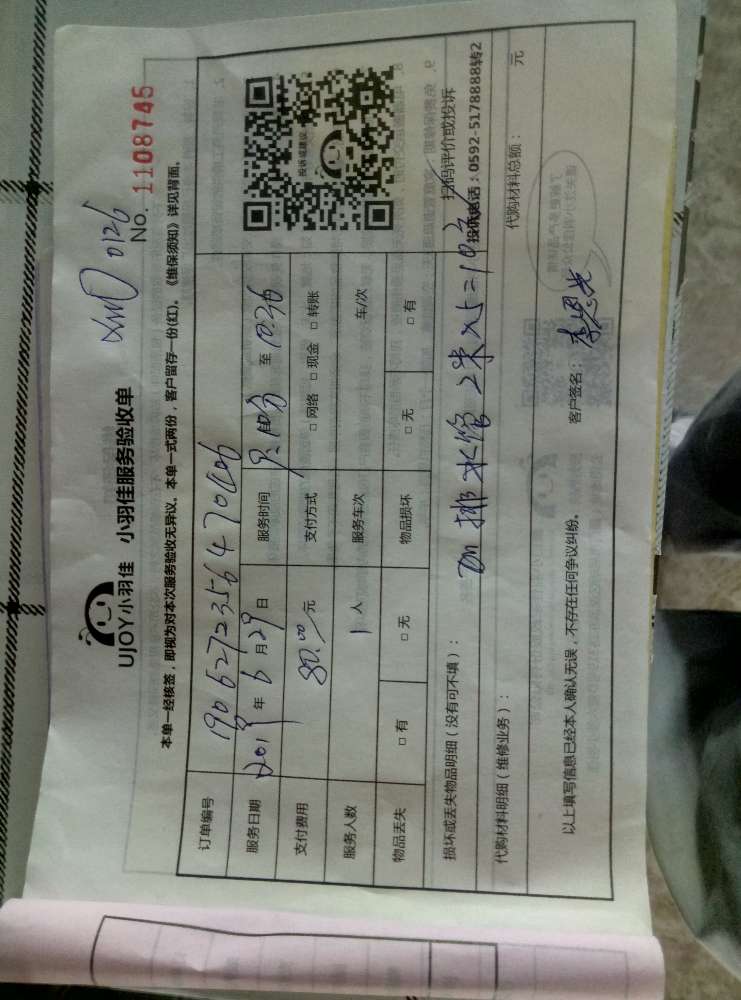 UJOY小羽佳 小羽佳服务验收单
XMD 0126
No. 1108745
本单一经核签，即视为对本次服务验收无异议。本单一式两份，客户留存一份(红)。《维保须知》详见背面。
订单编号 190627235647006
服务日期 2019年6月29日 服务时间 至 10:36
支付费用 80.00元 支付方式 □网络 □现金 □转账
服务人数 1人 服务车次 车/次
物品丢失 □有 □无 物品损坏 □无 □有
投诉或建议
扫码评价或投诉
投诉电话：0592-5178888转2
损坏或丢失物品明细（没有可不填）：
排水管 2米×5=10元
代购材料明细（维修业务）： 代购材料总额： 元
以上填写信息已经本人确认无误，不存在任何争议纠纷。 客户签名：